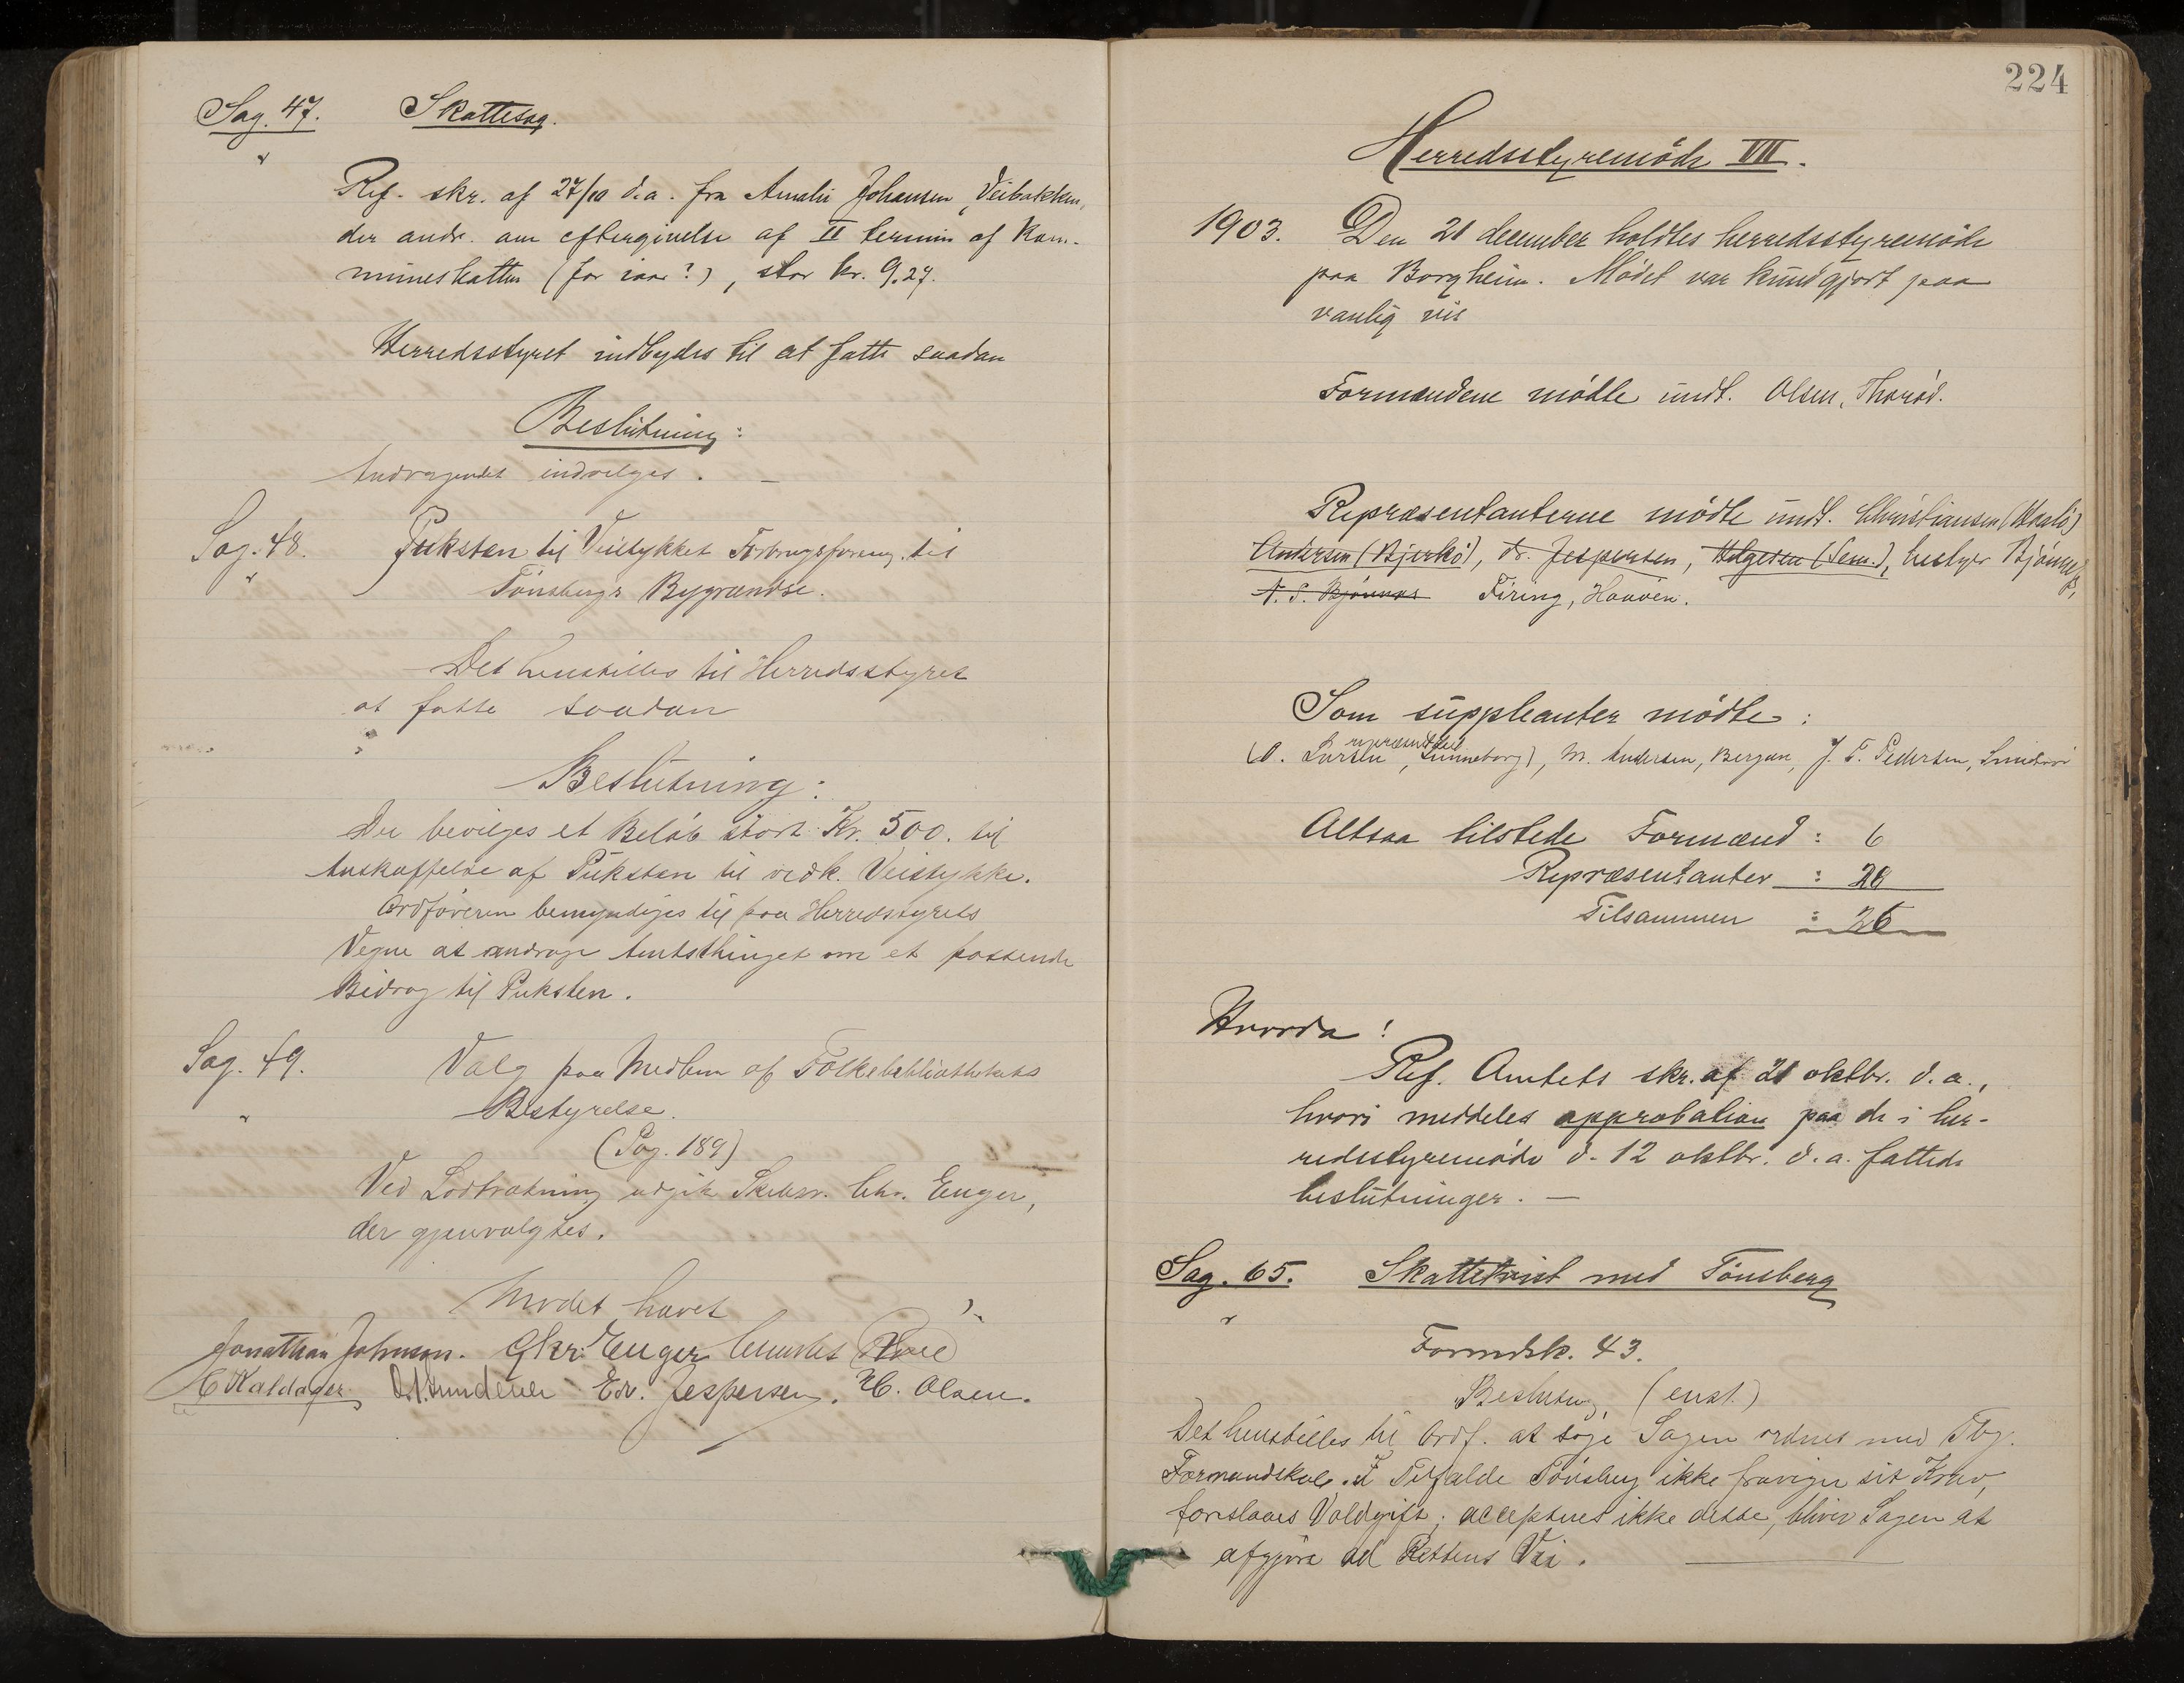 Sag. 47. Skattesag.
Ref. skr. af 27/10 d.a. fra Amalie Johansen, Veibakken,
der andr. om eftergivelse af II termin af Kom-
muneskatten (for iaar?), stor kr. 9.27.
Herredsstyret indbydes til at fatte saadan
Beslutning:
Andragendet indvilges. —
Sag. 48. Puksten til Veistykket Forbrugsforening. til
Tönsbergs Bygrændse.
Det henstilles til Herredsstyret
at fatte saadan
Beslutning:
Der bevilges et Belöb stort Kr. 500. til
Anskaffelse af Puksten til vedk. Veistykke.
Ordföreren bemyndiges til paa Herredsstyrets
Vegne at andrage Amtsthinget om et passende
Bidrag til Puksten.
Sag. 49. Valg paa Medlem af Folkebibliothekets
Bestyrelse.
(Pag. 189)
Ved Lodtrækning udgik Chr. Enger,
der gjenvalgtes.
Mödet hævet
Jonathan Johnson. Chr. Enger
C Kaldager. Edv. Jespersen. H. Olsen.
224
Herredsstyremöde VII.
1903. Den 21 december holdtes herredsstyremöde
paa Borgheim. Mödet var kundgjort paa
vanlig vis
Formændene mödte undt. Olsen, Thoröd.
Repræsentanterne mödte undt. Christiansen
Andersen (Bjerkö), dr. Jespersen, Helgesen (Sem.), bestyr Bjönnes,
N. P. Bjönnes Firing, Haaven.
Som suppleanter mödte:
repræsentant
(O. Larsen, Linneborg), M. Andersen, Bergan, J. F. Pedersen,
Altsaa tilstede Formænd: 6
Repræsentanter: 20
Tilsammen: 26
Hvorda!
Ref. Amtets skr. af 21 oktbr. d.a.,
hvori meddeles approbation paa de i her-
redsstyremöde d. 12 oktbr. d.a. fattede
beslutninger. —
Sag. 65. Skattetvist med Tönsberg
Formdsk. 43.
Beslutning. (enst.)
Det henstilles til Ordf. at söge Sagen ordnet med Tbg.
Formandskab. I Tilfælde Tönsberg ikke fraviger sit Krav,
foreslaaes Voldgift; accepteres ikke dette, bliver Sagen at
afgjöre ved Rettens Vei.